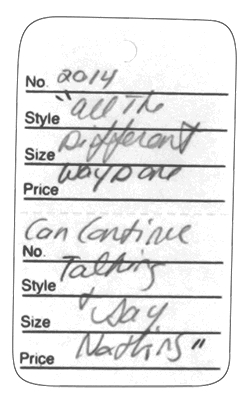 No. 2014
Style "all The
Size Different
Price Ways one
Can Continue
No.
Style Talking
Size & Say
Price Nothing"